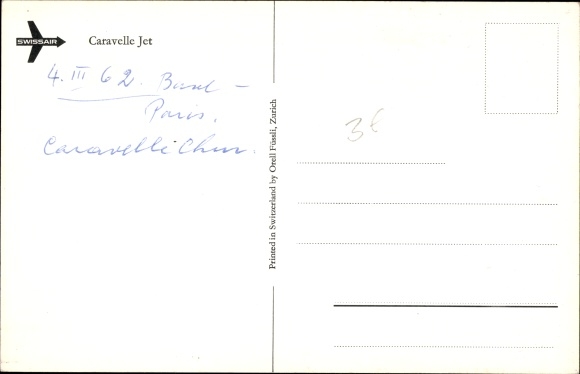 SWISSAIR
Caravelle Jet
4. III 62. Basel –
Paris.
Caravelle Chur.
Printed in Switzerland by Orell Füssli, Zurich